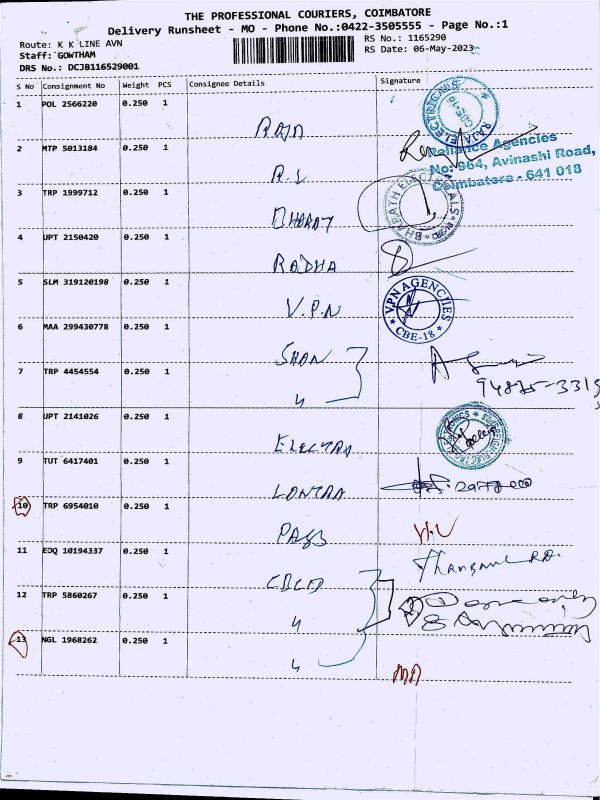 THE PROFESSIONAL COURIERS, COIMBATORE
Delivery Runsheet - MO - Phone No.:0422-3505555 - Page No.:1
Route: K K LINE AVN
RS No.: 1165290
Staff: GOWTHAM
RS Date: 06-May-2023
DRS No.: DCJB116529001
S No Consignment No Weight PCS Consignee Details Signature
1 POL 2566220 0.250 1
RAJA
RAJA ELECTRICALS CBE-18
2 MTP 5013184 0.250 1
R.L
Reliance Agencies
No: 664, Avinashi Road,
Coimbatore - 641 018
3 TRP 1999712 0.250 1
BHARAT
BHARATH ELECTRICALS
4 UPT 2150420 0.250 1
RADHA
5 SLM 319120198 0.250 1
V.P.N
VPN AGENCIES
CBE-18
6 MAA 299430778 0.250 1
SHAN
7 TRP 4454554 0.250 1
4
8 UPT 2141026 0.250 1
ELECTRA
9 TUT 6417401 0.250 1
10 TRP 6954010 0.250 1
11 EDQ 10194337 0.250 1
12 TRP 5860267 0.250 1
4
13 NGL 1968262 0.250 1
4